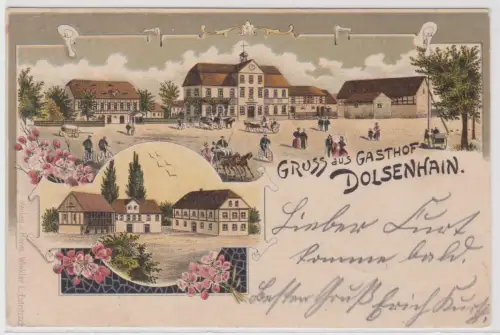 GRUSS aus GASTHOF
DOLSENHAIN.
Lieber Curt
komme bald.
Besten Gruß Erich Kurth